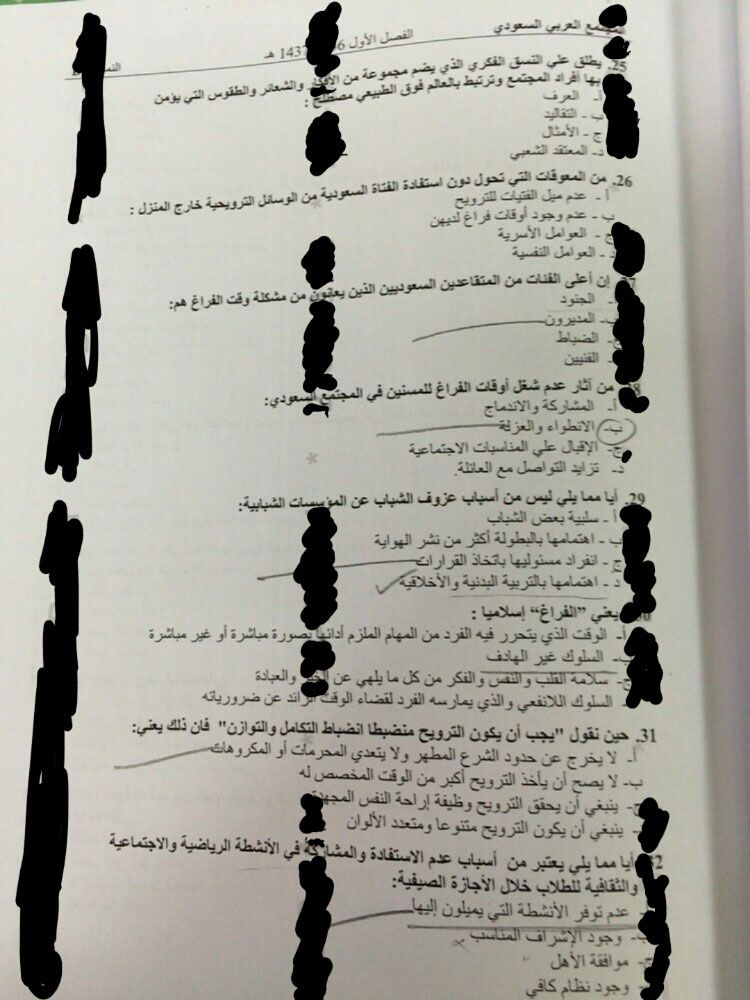 المجتمع العربي السعودي الفصل الأول 1437 هـ
25. يطلق علي النسق الفكري الذي يضم مجموعة من الأفكار والشعائر والطقوس التي يؤمن
بها أفراد المجتمع وترتبط بالعالم فوق الطبيعي مصطلح :
أ- العرف
ب - التقاليد
ج - الأمثال
د- المعتقد الشعبي
26. من المعوقات التي تحول دون استفادة الفتاة السعودية من الوسائل الترويحية خارج المنزل :
أ - عدم ميل الفتيات للترويح
ب - عدم وجود أوقات فراغ لديهن
ج - العوامل الأسرية
د - العوامل النفسية
إن أعلى الفئات من المتقاعدين السعوديين الذين يعانون من مشكلة وقت الفراغ هم:
الجنود
ب- المديرون
ج- الضباط
الفنيين
من آثار عدم شغل أوقات الفراغ للمسنين في المجتمع السعودي:
أ- المشاركة والاندماج
ب- الانطواء والعزلة
ج- الإقبال علي المناسبات الاجتماعية
د- تزايد التواصل مع العائلة.
29. أيا مما يلي ليس من أسباب عزوف الشباب عن المؤسسات الشبابية:
أ - سلبية بعض الشباب
ب- اهتمامها بالبطولة أكثر من نشر الهواية
ج- انفراد مسئوليها باتخاذ القرارات
د - اهتمامها بالتربية البدنية والأخلاقية
يعني "الفراغ" إسلاميا :
أ- الوقت الذي يتحرر فيه الفرد من المهام الملزم أدائها بصورة مباشرة أو غير مباشرة
ب- السلوك غير الهادف
ج- سلامة القلب والنفس والفكر من كل ما يلهي عن والعبادة
السلوك اللانفعي والذي يمارسه الفرد لقضاء الوقت الزائد عن ضرورياته
31. حين نقول "يجب أن يكون الترويح منضبطا انضباط التكامل والتوازن" فان ذلك يعني:
أ- لا يخرج عن حدود الشرع المطهر ولا يتعدي المحرمات أو المكروهات
ب- لا يصح أن يأخذ الترويح أكبر من الوقت المخصص له
ج- ينبغي أن يحقق الترويح وظيفة إراحة النفس المجهدة
ينبغي أن يكون الترويح متنوعا ومتعدد الألوان
أيا مما يلي يعتبر من أسباب عدم الاستفادة والمشاركة في الأنشطة الرياضية والاجتماعية
والثقافية للطلاب خلال الأجازة الصيفية:
عدم توفر الأنشطة التي يميلون إليها
ب- وجود الإشراف المناسب
ج- موافقة الأهل
وجود نظام كافي